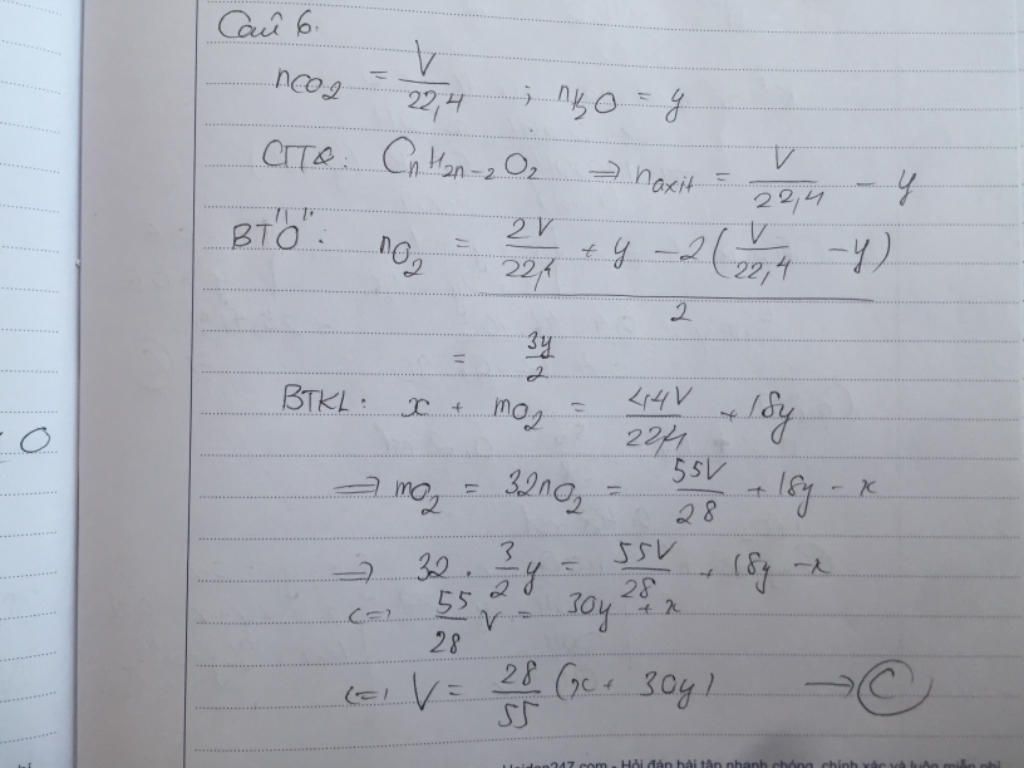 Câu 6.
nCO2 = V/22,4 ; nH2O = y
CTTQ: CnH2n-2O2 => naxit = V/22,4 - y
BT"O": nO2 = (2V/22,4 + y - 2(V/22,4 - y))/2
= 3y/2
BTKL: x + mO2 = 44V/22,4 + 18y
=> mO2 = 32nO2 = 55V/28 + 18y - x
=> 32 . 3/2 y = 55V/28 + 18y - x
<=> 55/28 V = 30y + x
<=> V = 28/55 (x + 30y) → C
O
Hoidap247.com - Hỏi đáp bài tập nhanh chóng, chính xác và luôn miễn phí